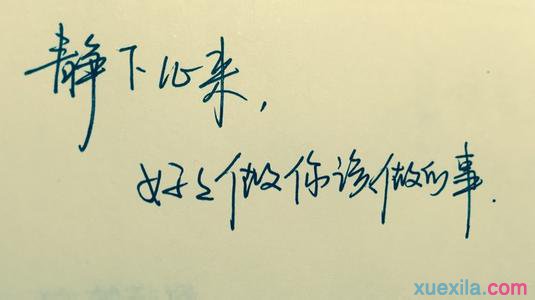 静下心来,
好々做你该做的事.
xuexila.com